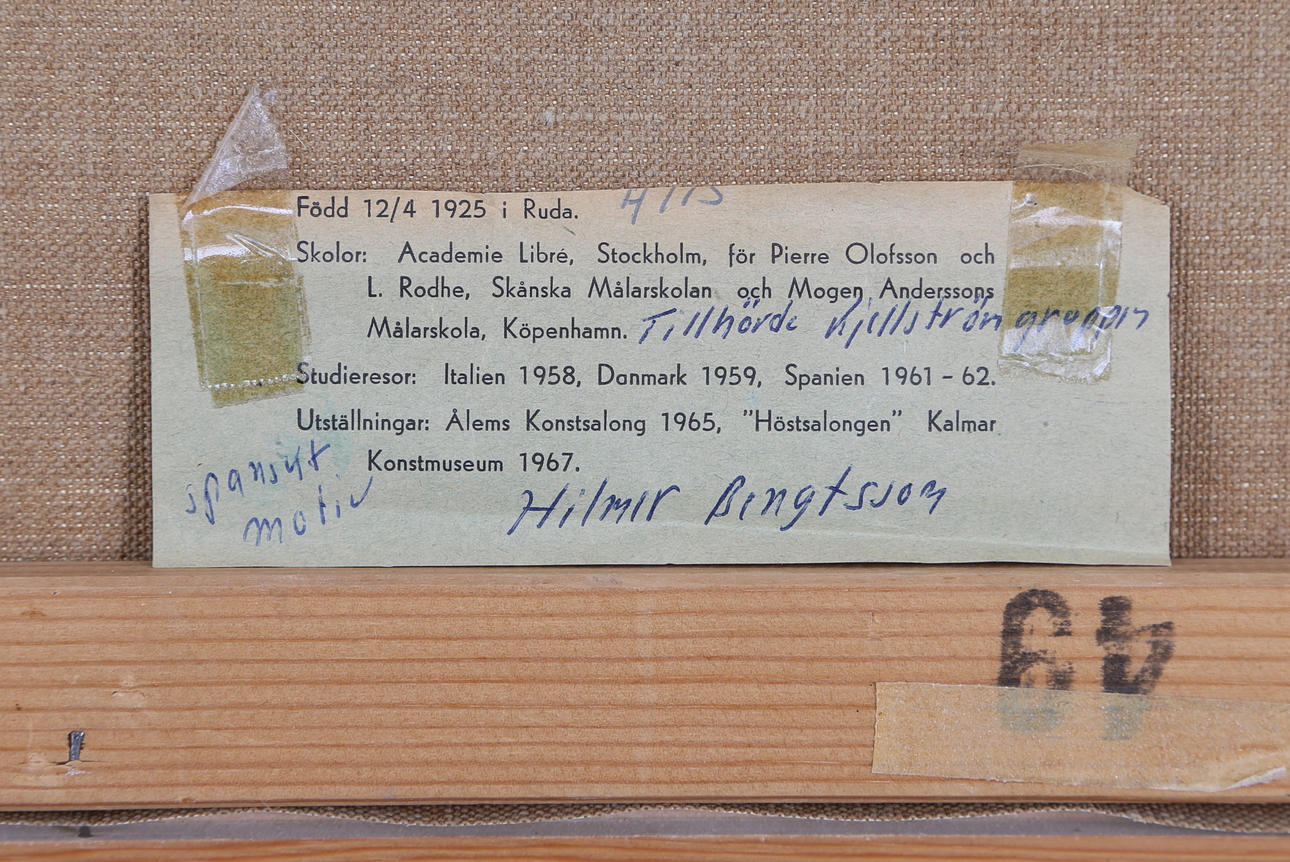 Född 12/4 1925 i Ruda.
Skolor: Academie Libré, Stockholm, för Pierre Olofsson och
L. Rodhe, Skånska Målarskolan och Mogen Anderssons
Målarskola, Köpenhamn. Tillhörde Kjellströmgruppen
Studieresor: Italien 1958, Danmark 1959, Spanien 1961 - 62.
Utställningar: Ålems Konstsalong 1965, ”Höstsalongen” Kalmar
Konstmuseum 1967.
spanskt
motiv
Hilmer Bengtsson